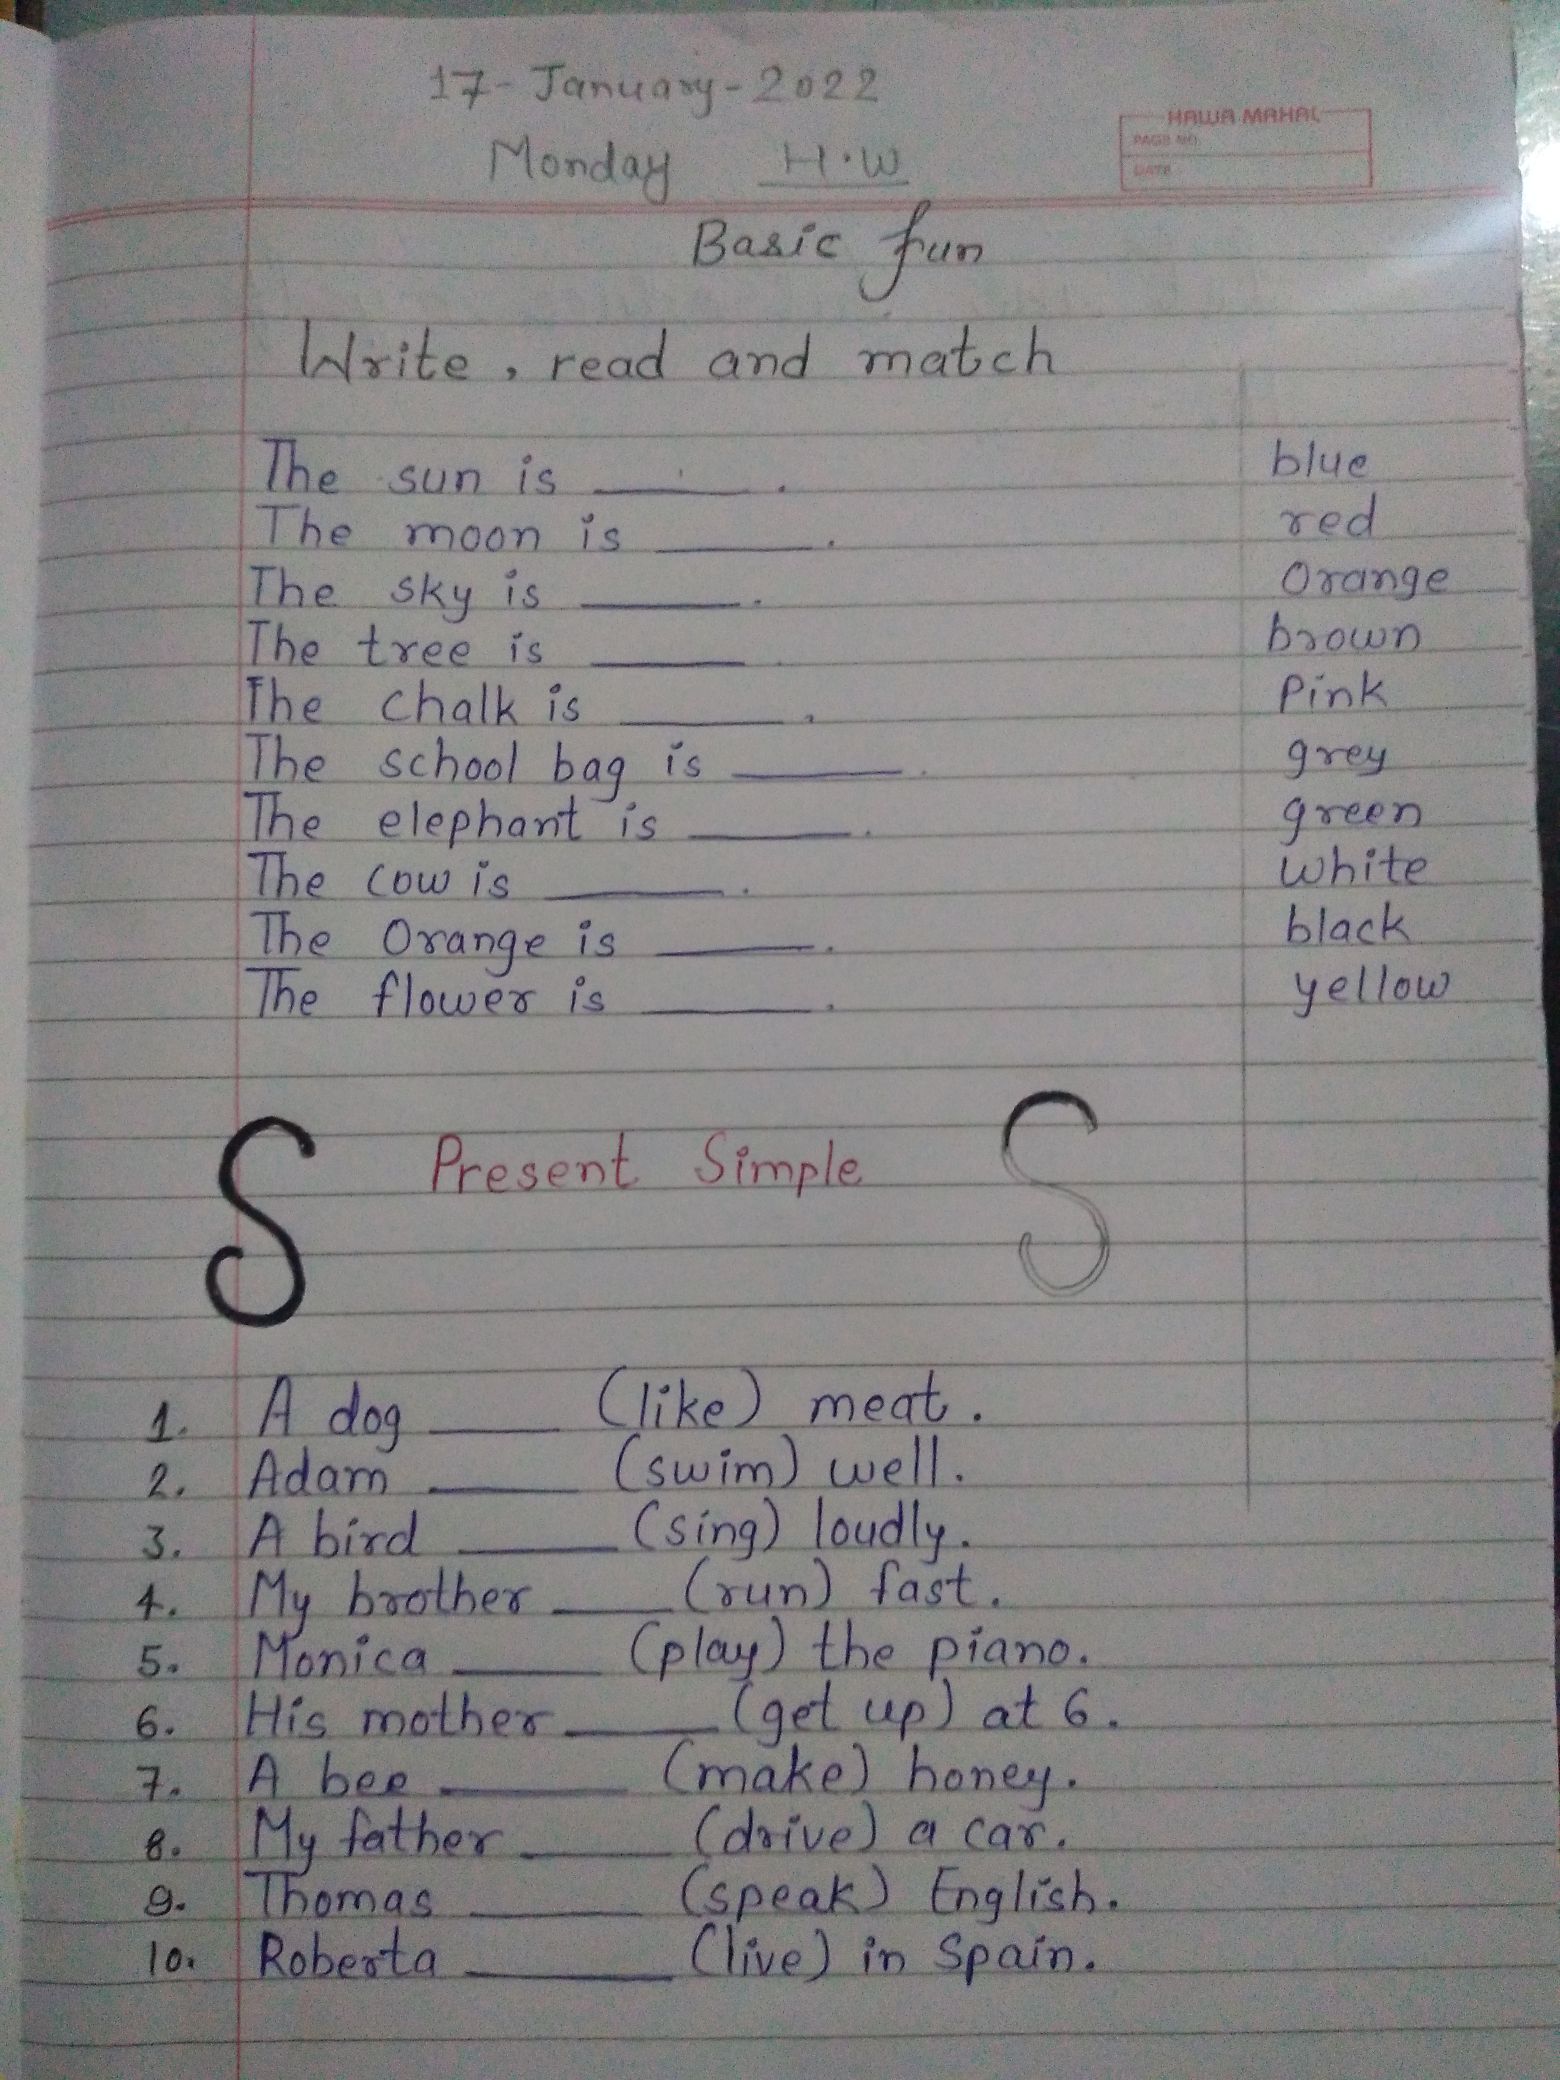 17-January-2022
HAWA MAHAL
PAGE NO.
DATE
Monday H.W
Basic fun
Write, read and match
The sun is ______. blue
The moon is ______. red
The sky is ______. Orange
The tree is ______. brown
The chalk is ______. Pink
The school bag is ______. grey
The elephant is ______. green
The cow is ______. white
The Orange is ______. black
The flower is ______. yellow
S Present Simple S
1. A dog ______ (like) meat.
2. Adam ______ (swim) well.
3. A bird ______ (sing) loudly.
4. My brother ______ (run) fast.
5. Monica ______ (play) the piano.
6. His mother ______ (get up) at 6.
7. A bee ______ (make) honey.
8. My father ______ (drive) a car.
9. Thomas ______ (speak) English.
10. Roberta ______ (live) in Spain.